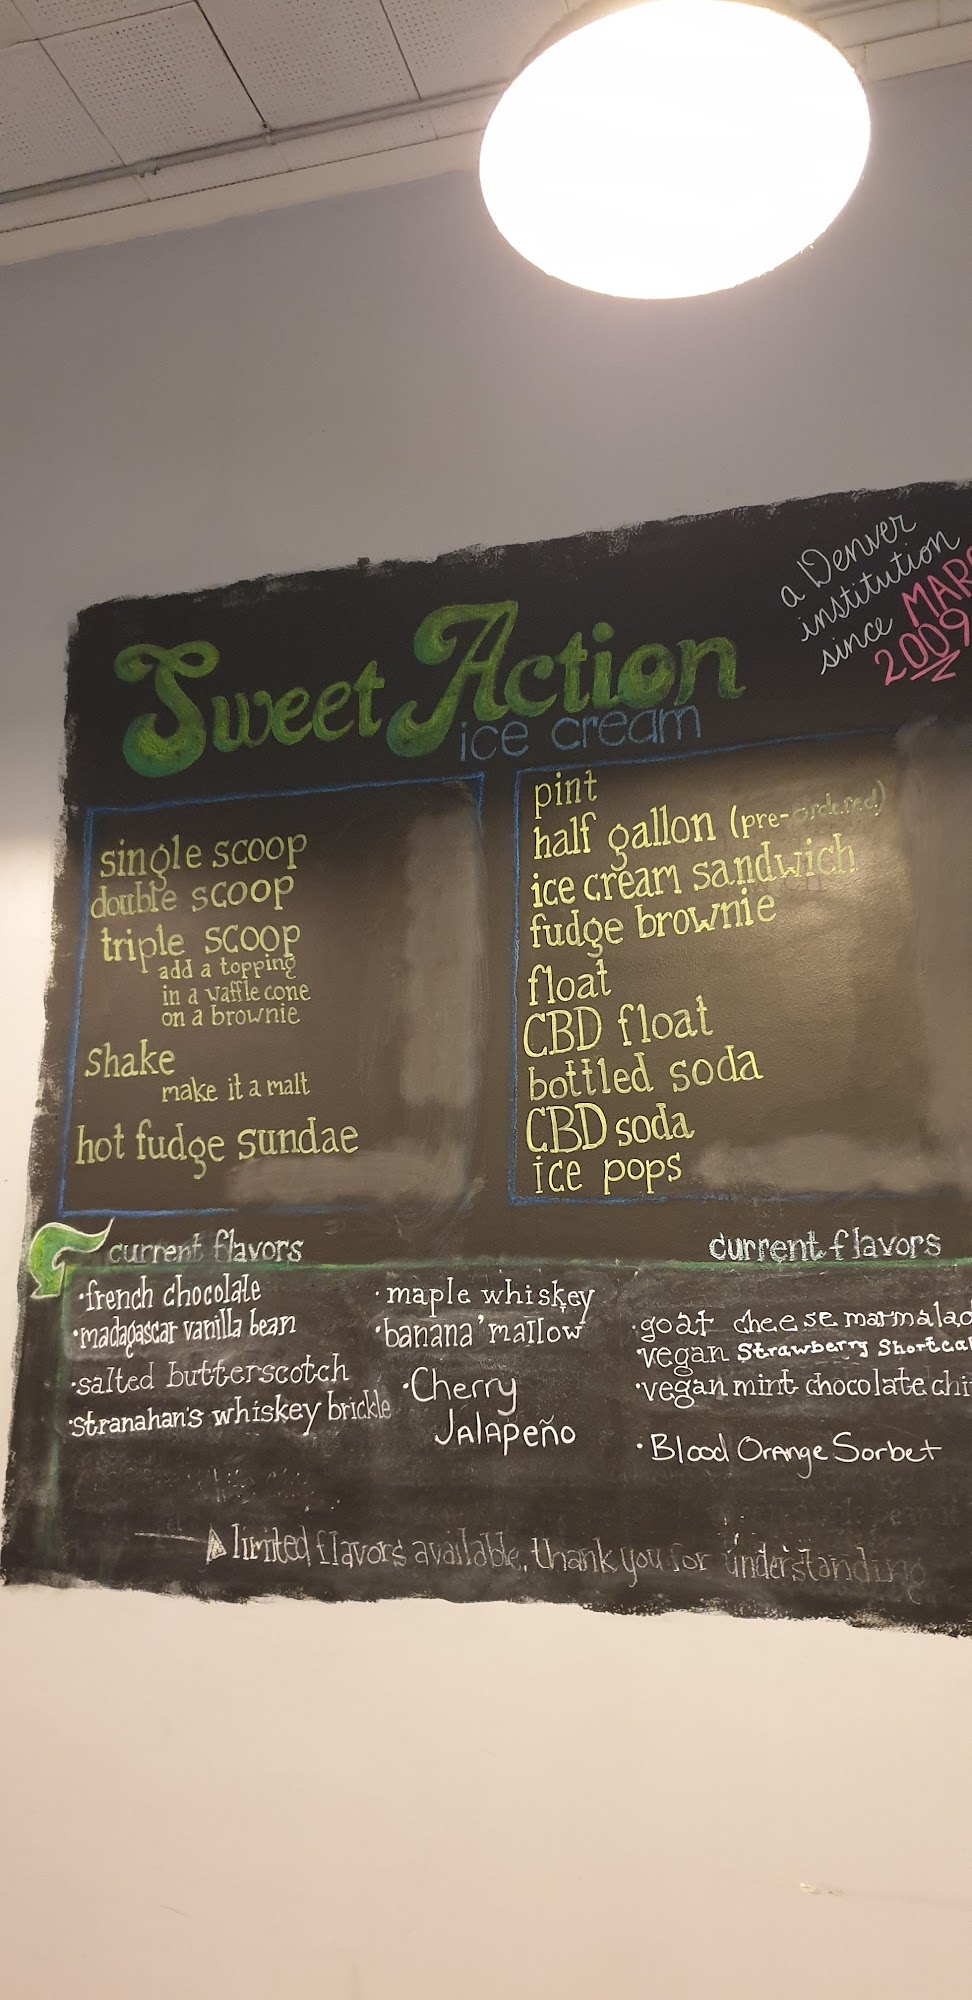 a Denver
institution
since
2009
Sweet Action
ice cream
single scoop
double scoop
triple scoop
add a topping
in a waffle cone
on a brownie
shake
make it a malt
hot fudge sundae
pint
half gallon (pre-ordered)
ice cream sandwich
fudge brownie
float
CBD float
bottled soda
CBD soda
ice pops
current flavors
·french chocolate
·madagascar vanilla bean
·salted butterscotch
·stranahan's whiskey brickle
·maple whiskey
·banana 'mallow
·Cherry
JALAPEÑO
current flavors
·goat cheese
vegan Strawberry
·vegan mint chocolate
·Blood Orange Sorbet
limited flavors available, thank you for understanding